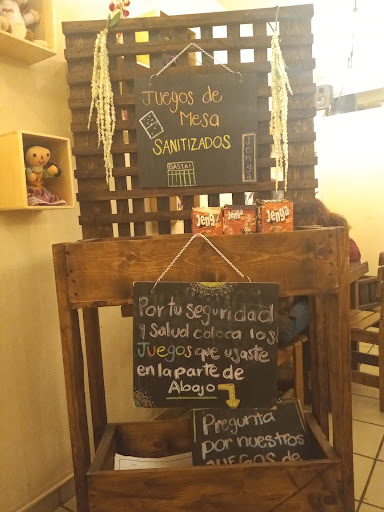 Juegos de
Mesa
SANITIZADOS
BASTA!
Jenga
Jenga
Jenga
Jenga
Por tu seguridad
y salud coloca los
Juegos que usaste
en la parte de
Abajo
Pregunta
por nuestros
JUEGOS de